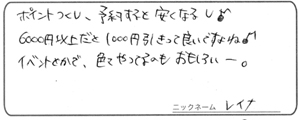 ポイントつくし、予約すると安くなるし♪
6000円以上だと1000円引きって良いですよね♪
イベントとかで、色々やってるのもおもしろいー。
ニックネーム レイナ